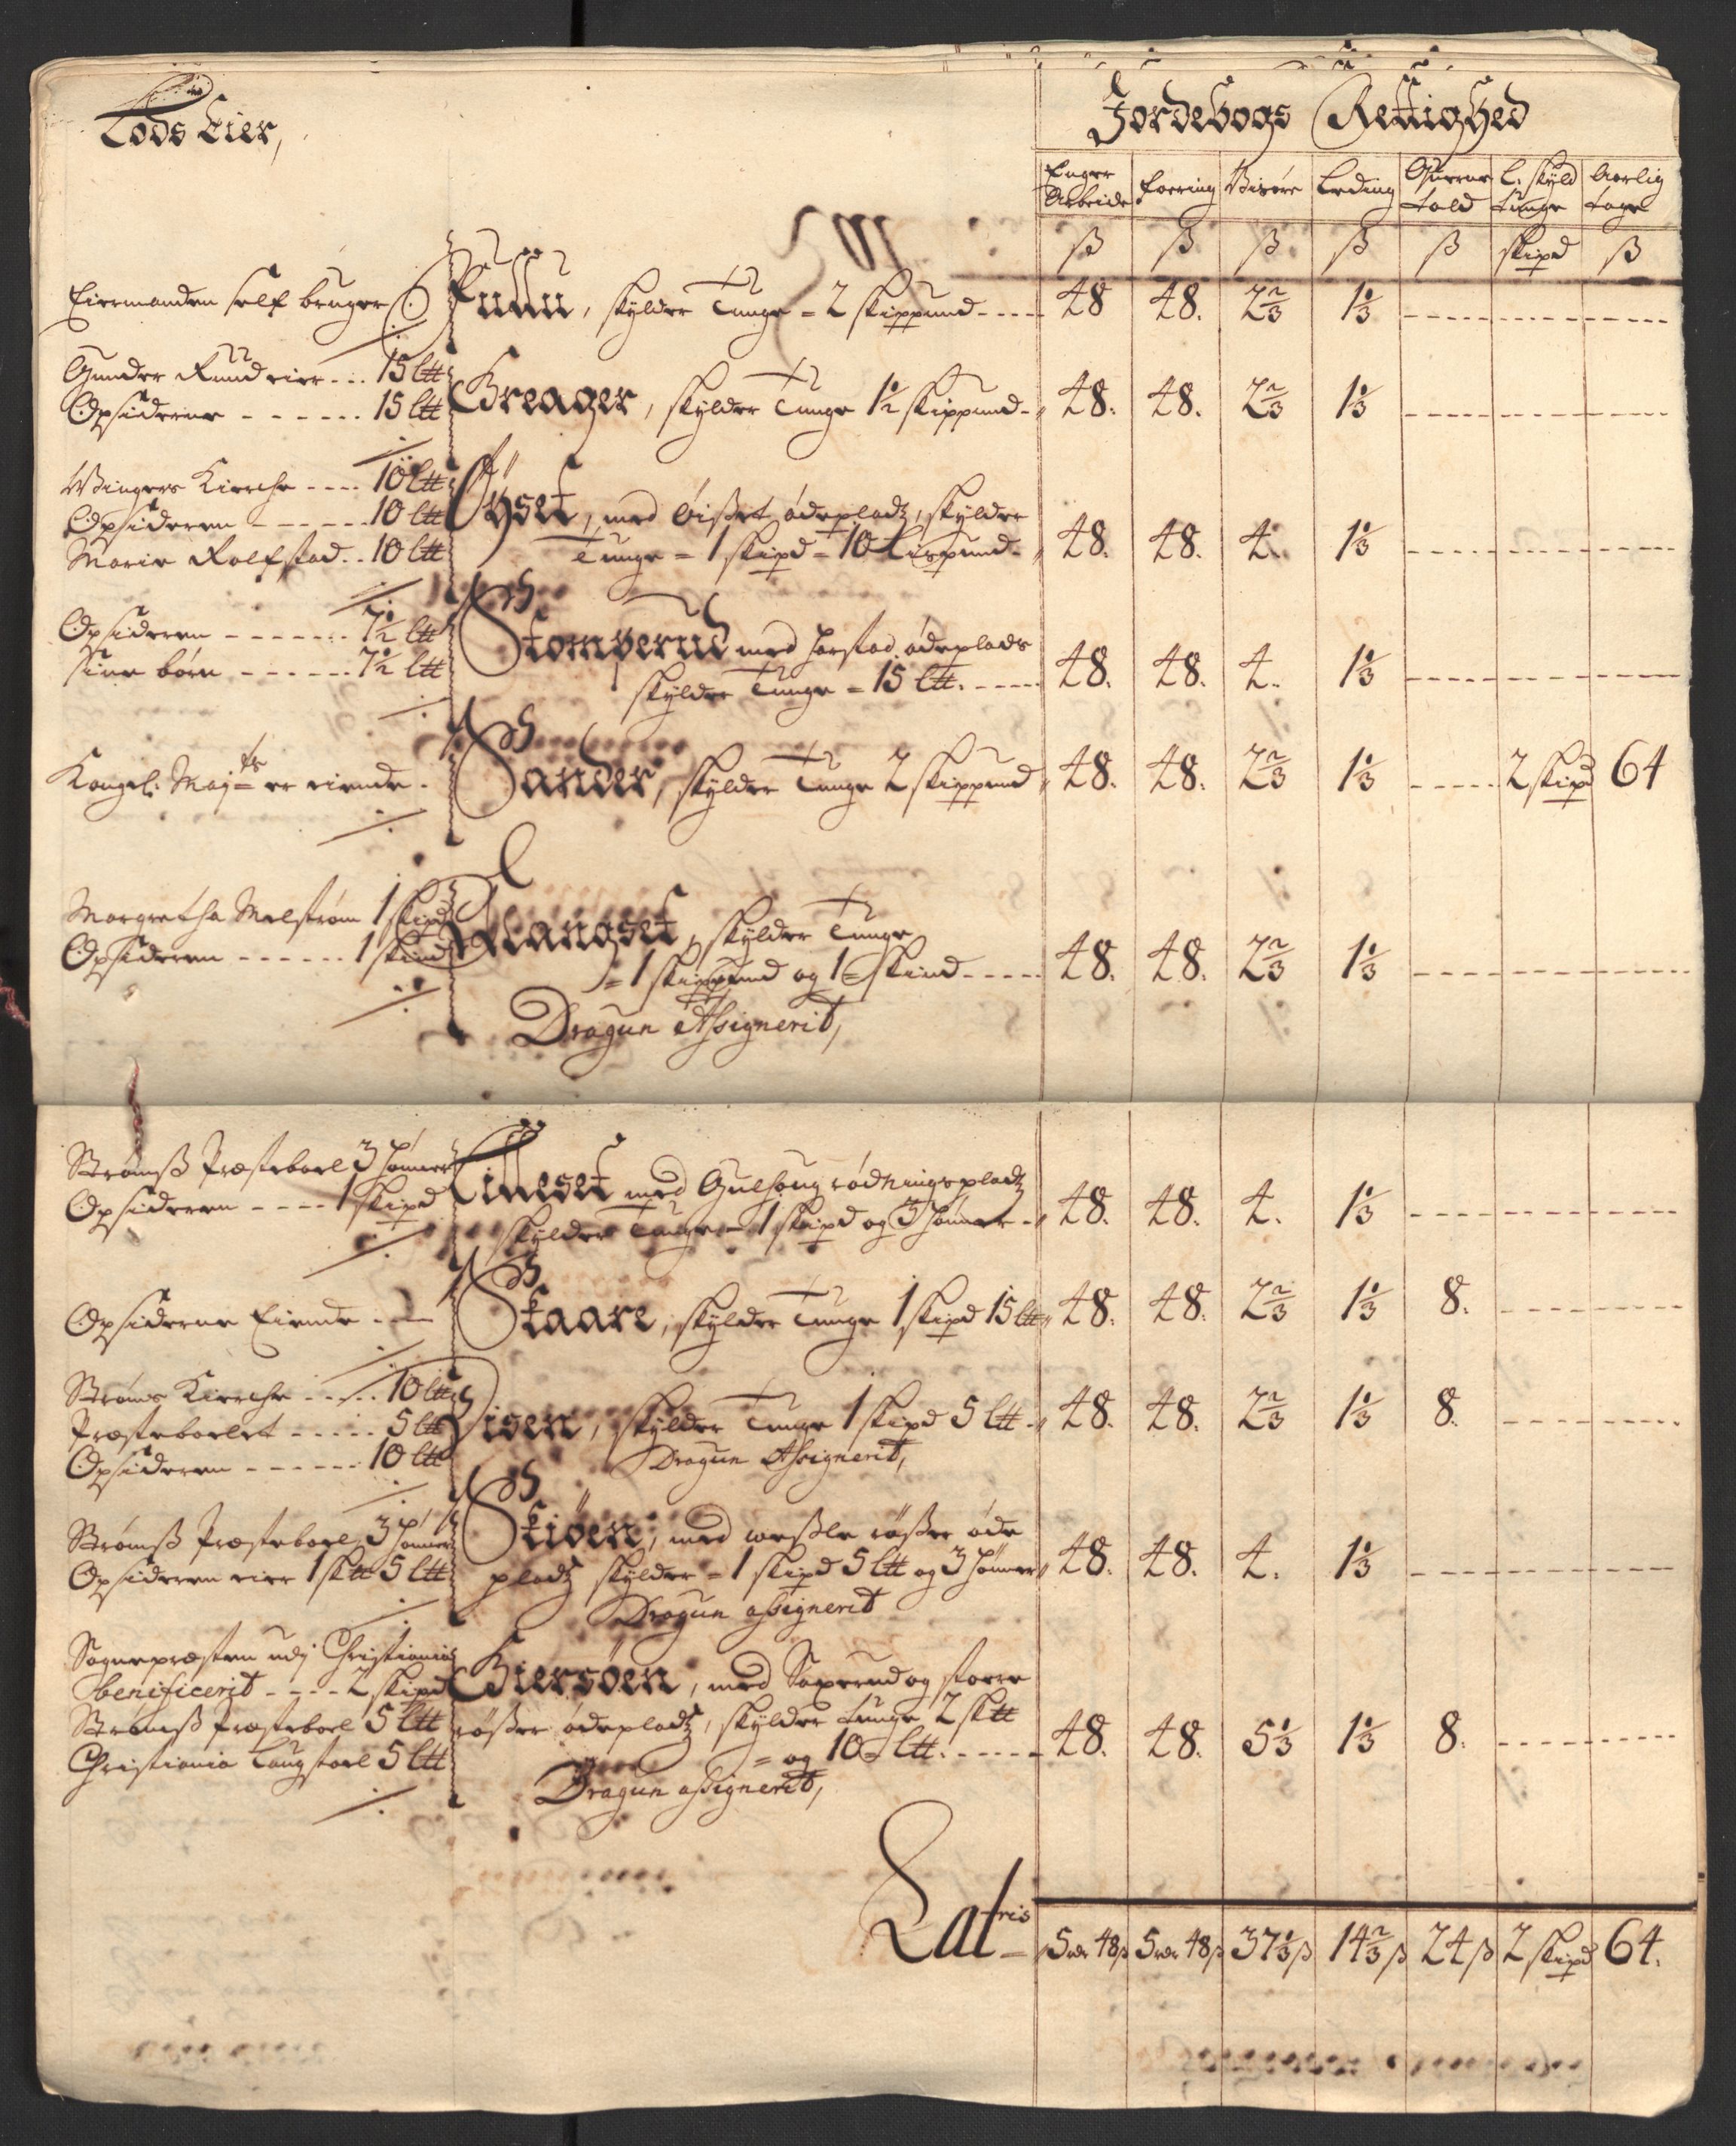 Lods Eier,
Jordebogs Rettighed
Enger Arbeide | Foering | Visøre | Leding | Querne told | L: skyld tunge | Aarlig tage
ß | ß | ß | ß | ß | skipd | ß
Eiermanden self bruger
Ruuu, skylder Tunge = 2 skippund ---- 48 48. 2 2/3 1 1/3
Gunder Ruud eier --- 15 ltt
Opsiderne ------ 15 ltt
Greager, skylder Tunge 1 1/2 skippund - 48. 48. 2 2/3 1 1/3
Wingers Kierche ---- 10 ltt
Opsideren ------ 10 ltt
Marie Rolfstad .. 10 ltt
Øyset, med Øisset ødepladz, skylder
Tunge = 1 skipd = 10 Lispund - 48. 48. 4. 1 1/3
Opsideren ------ 7 1/2 ltt
sine børn ------ 7 1/2 ltt
Stomperud med Harstad ødeplads
skylder Tunge = 15 ltt. ---- 48. 48. 4. 1 1/3
Kongel: Majts er eiende.
Sander, skylder Tunge 2 skippund 48. 48. 2 2/3 1 1/3 ---- 2 skipd 64
Margretha Melstrøm 1 skipd
Opsideren ------ 1 skind
Klangset, skylder Tunge
= 1 skippund og 1 = skind ---- 48. 48. 2 2/3 1 1/3
Dragun Assignerit,
Strømß Præsteboel 3 Hønner
Opsideren ---- 1 skipd
Lineset med Gulhoug rødningspladz
skylder Tunge = 1 skipd og 3 Hønner - 48. 48. 4. 1 1/3
Opsiderne Eiende
Skaare, skylder Tunge 1 skipd 15 ltt 48. 48. 2 2/3 1 1/3 8.
Strøms Kierche ---- 10 ltt
Præsteboelet ---- 5 ltt
Opsideren ------ 10 ltt
Disen, skylder Tunge 1 skipd 5 ltt - 48. 48. 2 2/3 1 1/3 8.
Dragun Assignerit,
Strømß Præsteboel 3 Hønner
Opsideren eier 1 sktt 5 ltt
Skiøen, med weßle røßer øde
pladz skylder = 1 skipd 5 ltt og 3 Hønner 48. 48. 4. 1 1/3
Dragun assignerit
Sognepræsten udj Christiania
benificerit ---- 2 skipd
Strømß Præsteboel 5 ltt
Christiania Laugstoel 5 ltt
Giersøen, med Saxerud og storre
røßer ødepladz, skylder tunge 2 sktt
= og 10 = ltt. ----- 48. 48. 5 1/3 1 1/3 8.
Dragun assignerit,
Latris = 5 rdr 48 ß 5 rdr 48 ß 37 1/3 ß 14 2/3 ß 24 ß 2 skipd 64.